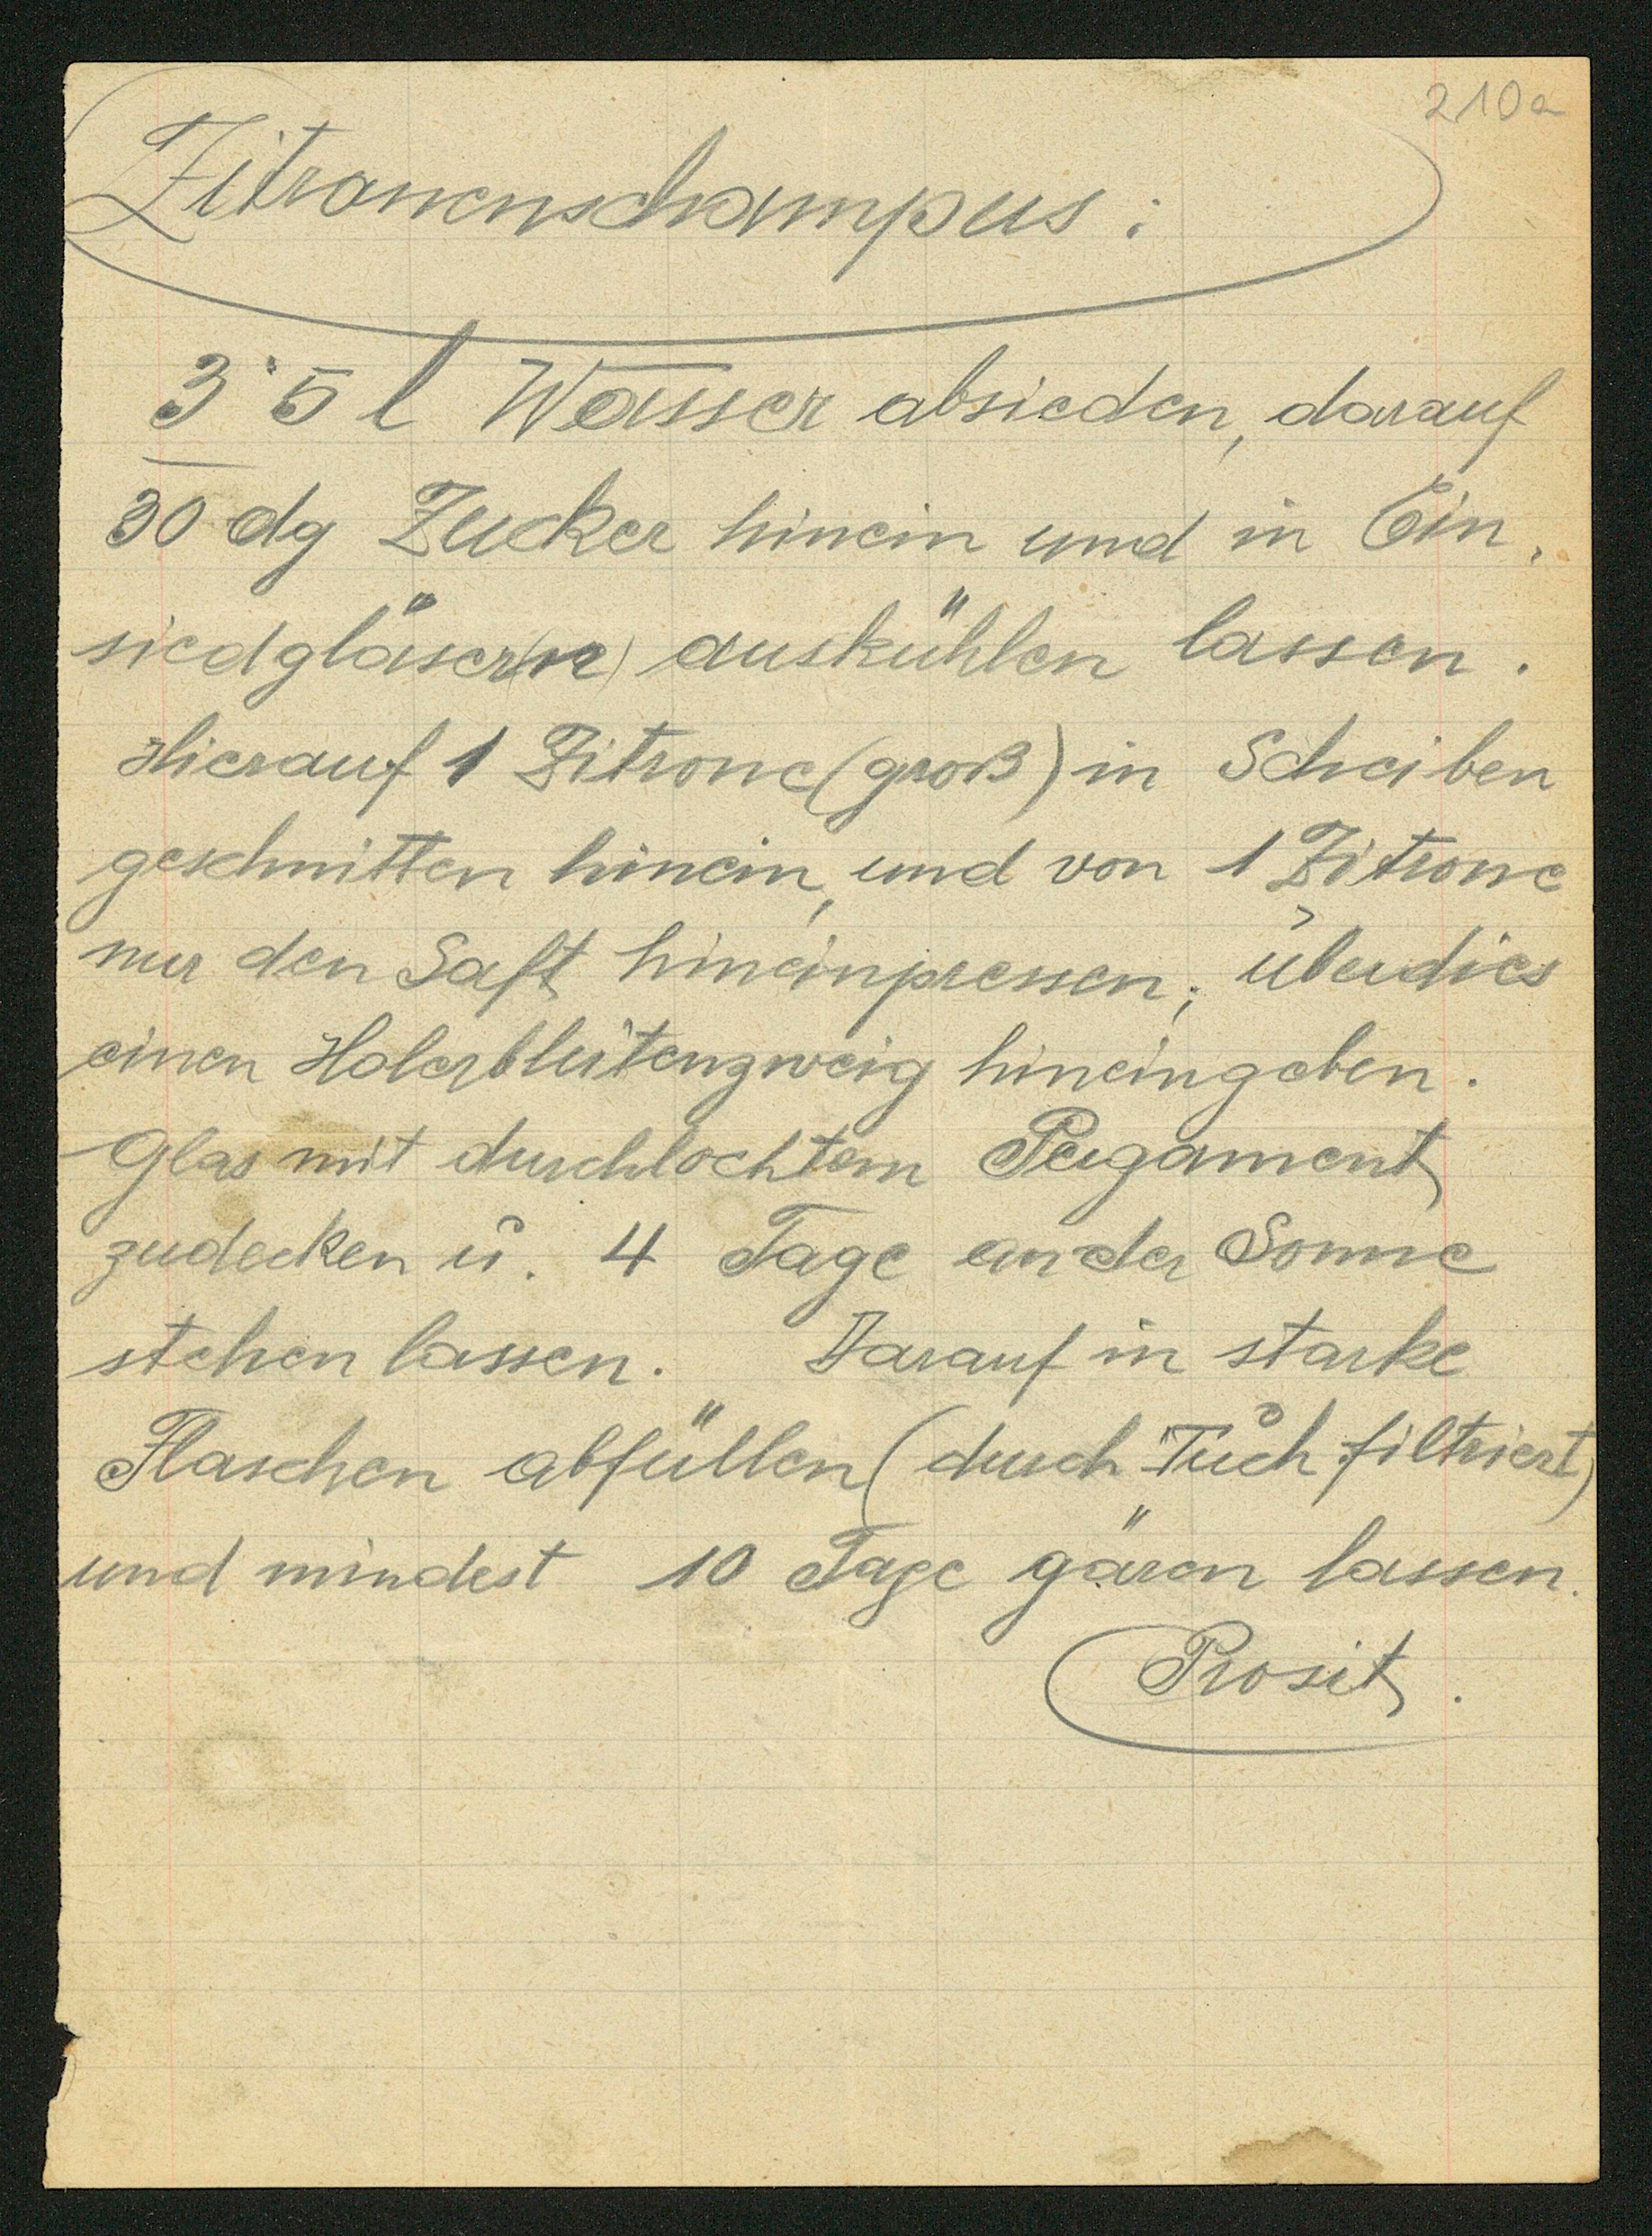 210a
Zitronenschampus:
3˙5 l Wasser absieden, darauf
30 dg Zucker hinein und in Ein-
siedgläser(n) auskühlen lassen.
Hierauf 1 Zitrone (groß) in Scheiben
geschnitten hinein, und von 1 Zitrone
nur den Saft hineinpressen; überdies
einen Holerblütenzweig hineingeben.
Glas mit durchlochtem Pergament
zudecken u. 4 Tage an der Sonne
stehen lassen. Darauf in starke
Flaschen abfüllen (durch Tuch filtriert)
und mindest 10 Tage gären lassen.
Prosit.